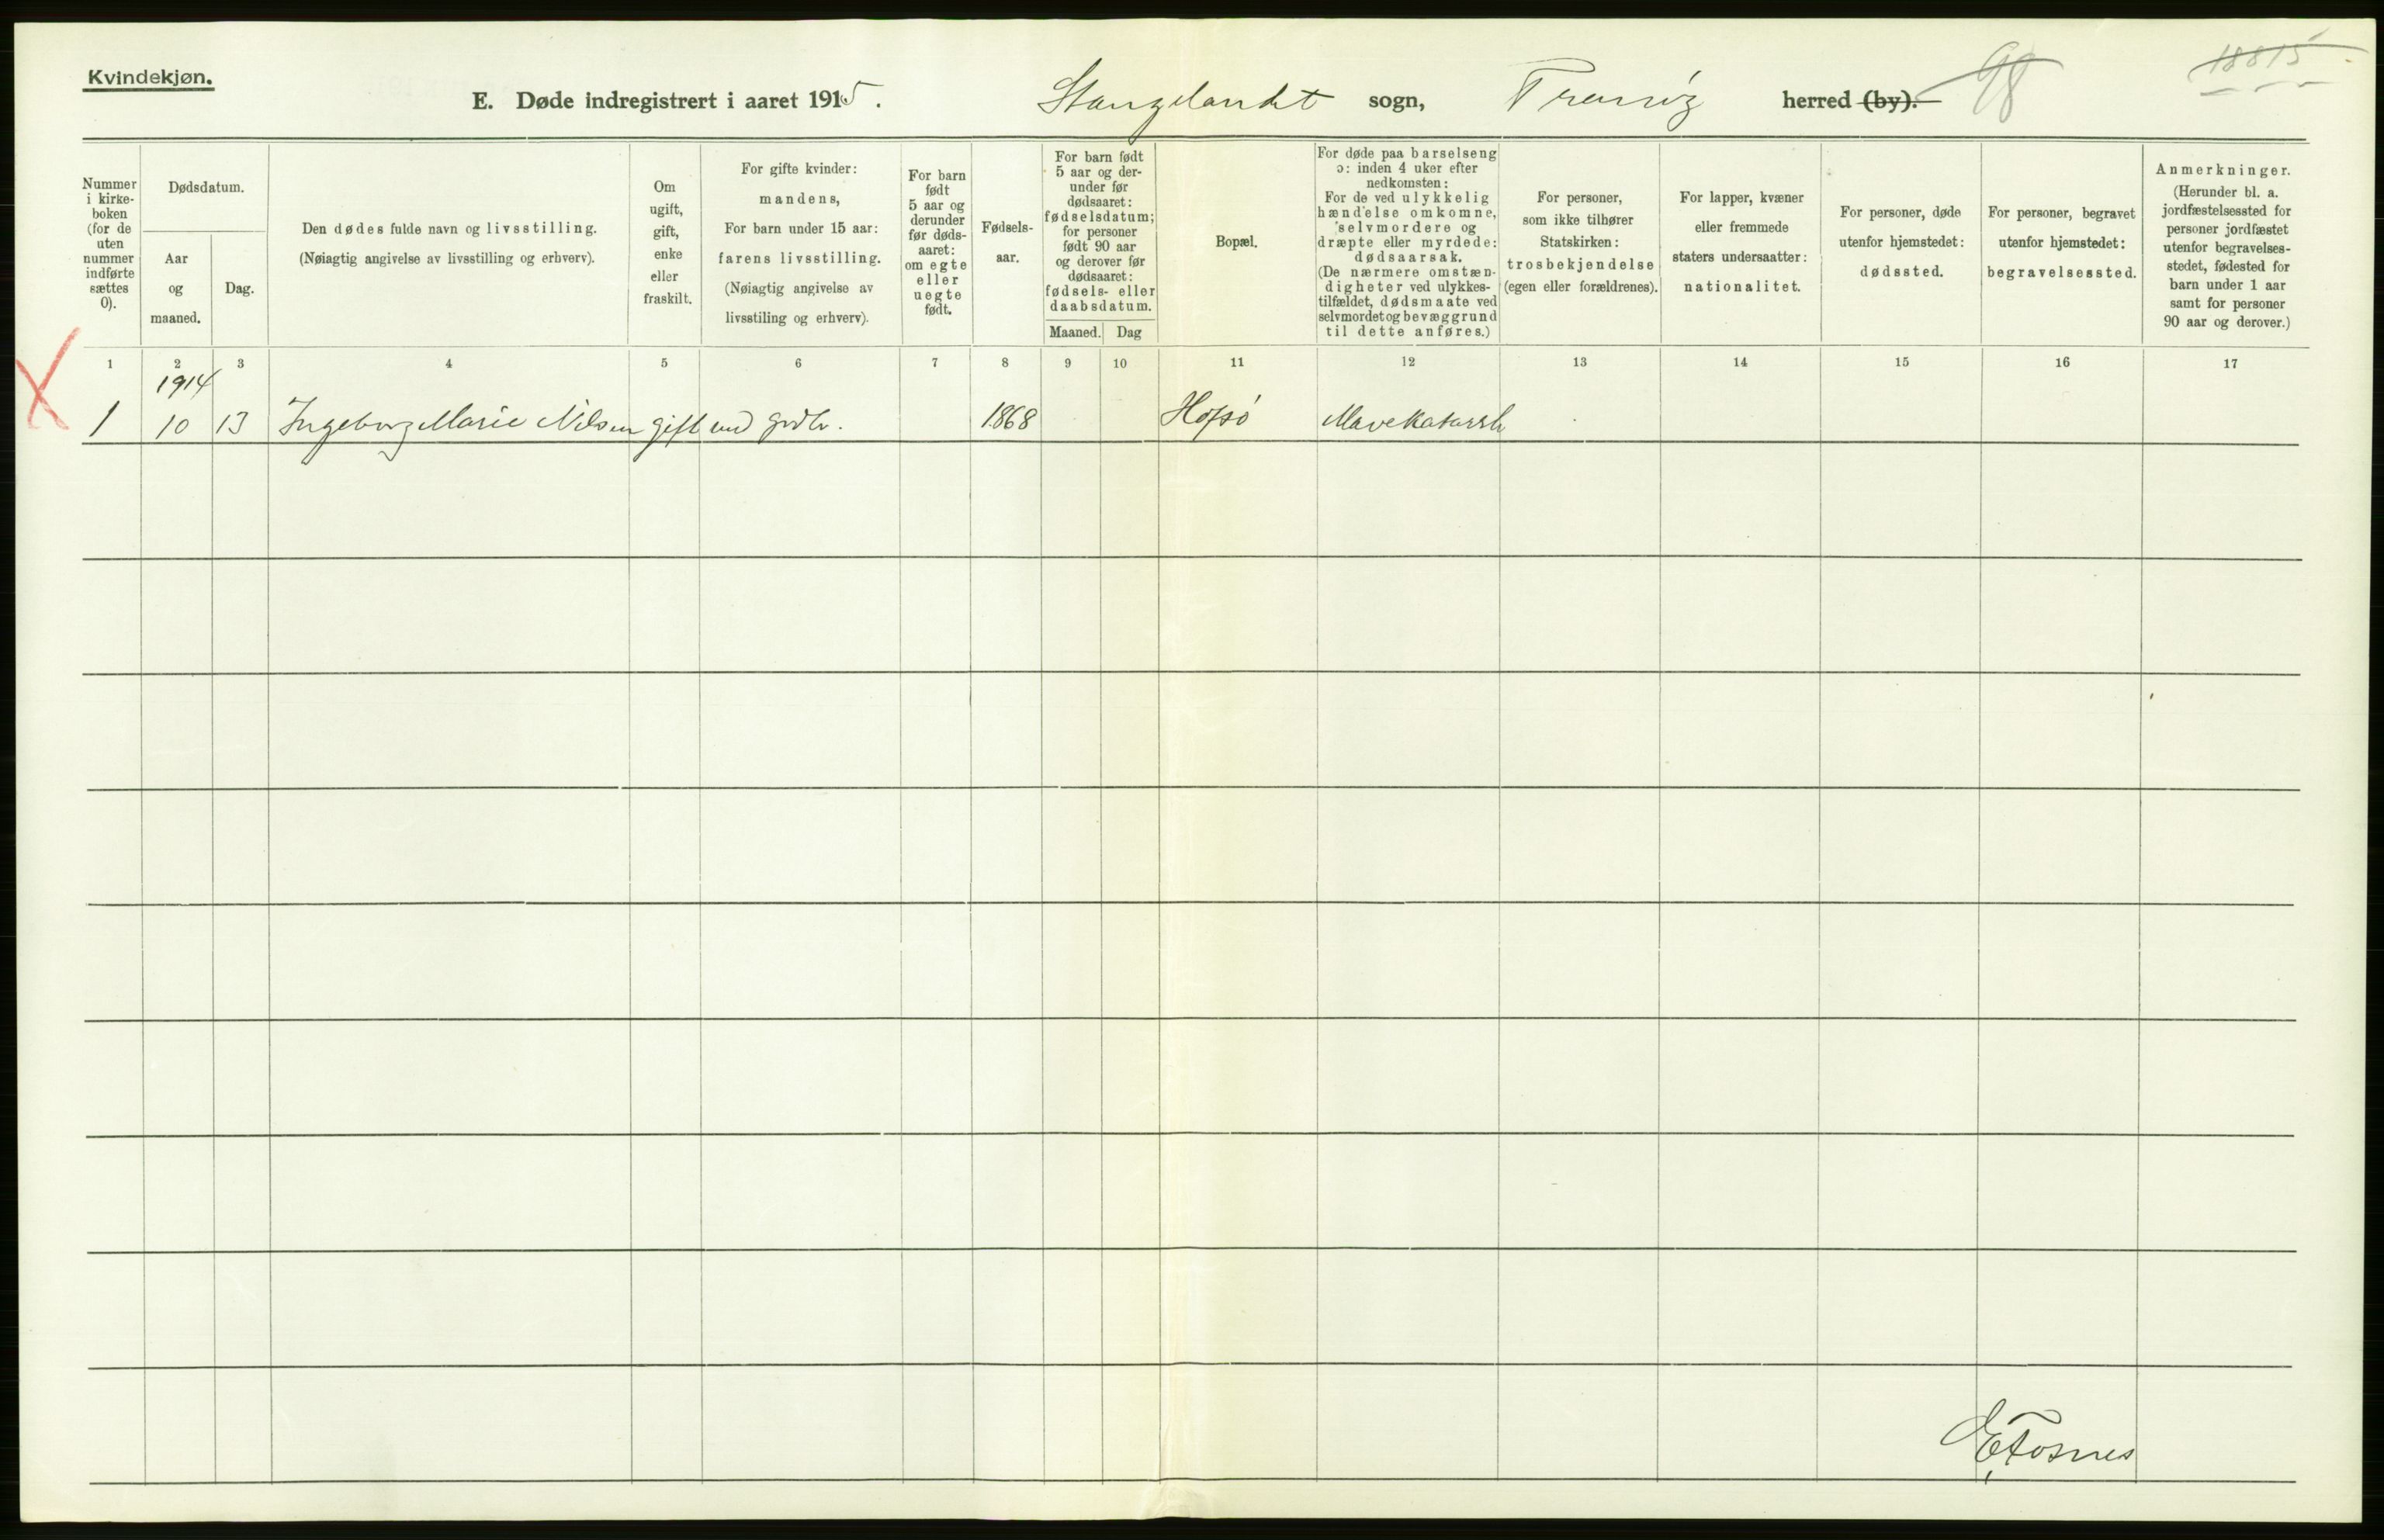 Kvindekjøn.
E. Døde indregistrert i aaret 1915.
Stangelandet sogn, Tranøy herred (by).
98
18815
Nummer
i kirke-
boken
(for de
uten
nummer
indførte
sættes
0).
Dødsdatum.
Aar
og
maaned.
Dag.
Den dødes fulde navn og livsstilling.
(Nøiagtig angivelse av livsstilling og erhverv).
Om
ugift,
gift,
enke
eller
fraskilt.
For gifte kvinder:
mandens,
For barn under 15 aar:
farens livsstilling.
(Nøiagtig angivelse av
livsstiling og erhverv).
For barn
født
5 aar og
derunder
før døds-
aaret:
om egte
eller
uegte
født.
Fødsels-
aar.
For barn født
5 aar og der-
under før
dødsaaret:
fødselsdatum;
for personer
født 90 aar
og derover før
dødsaaret:
fødsels- eller
daabsdatum.
Maaned. Dag
Bopæl.
For døde paa barselseng
ɔ: inden 4 uker efter
nedkomsten:
For de ved ulykkelig
hændelse omkomne,
selvmordere og
dræpte eller myrdede:
dødsaarsak.
(De nærmere omstæn-
digheter ved ulykkes-
tilfældet, dødsmaate ved
selvmordet og bevæggrund
til dette anføres.)
For personer,
som ikke tilhører
Statskirken:
trosbekjendelse
(egen eller forældrenes).
For lapper, kvæner
eller fremmede
staters undersaatter:
nationalitet.
For personer, døde
utenfor hjemstedet:
dødssted.
For personer, begravet
utenfor hjemstedet:
begravelsessted.
Anmerkninger.
(Herunder bl. a.
jordfæstelsessted for
personer jordfæstet
utenfor begravelses-
stedet, fødested for
barn under 1 aar
samt for personer
90 aar og derover.)
1 2 3 4 5 6 7 8 9 10 11 12 13 14 15 16 17
1914
1 10 13 Ingeborg Marie Nilsen gift med grdbr. 1868 Hofsö Mavekatarrh
E Fosnes